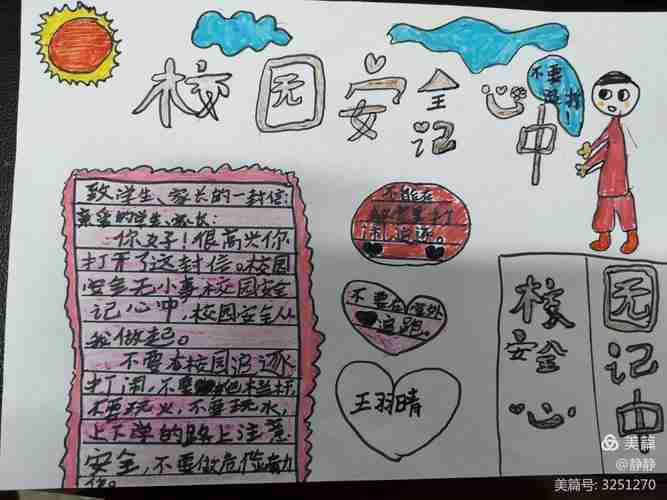 校园安全
记
心中
不要
致学生、家长的一封信:
亲爱的学生、家长:
你好!很高兴你
打开了这封信。校园
安全无小事校园安全
记心中,校园安全从
我做起。
不要在校园追逐
打闹,不要
不要玩火,不要玩水,
上下学的路上注意
安全,不要做危险
不能在
打
闹追逐。
不要在
追跑。
王羽晴
校 园
安全 记
心 中
美篇
@静静
美篇号: 3251270